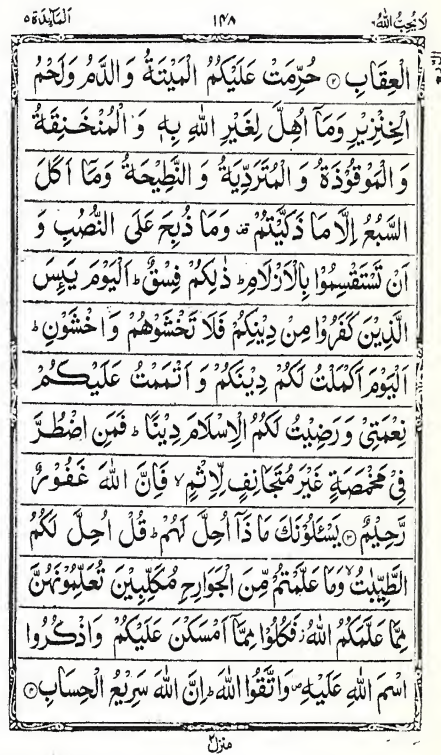 لَا يُحِبُّ اللهُ ٦ ١٤٨ اَلْمَآئِدَة ٥
الْعِقَابِ ۝٢ حُرِّمَتْ عَلَيْكُمُ الْمَيْتَةُ وَالدَّمُ وَلَحْمُ
الْخِنْزِيْرِ وَمَآ اُهِلَّ لِغَيْرِ اللهِ بِهٖ وَ الْمُنْخَنِقَةُ
وَ الْمَوْقُوْذَةُ وَ الْمُتَرَدِّيَةُ وَ النَّطِيْحَةُ وَمَآ اَكَلَ
السَّبُعُ اِلَّا مَا ذَكَّيْتُمْ ۫ وَمَا ذُبِحَ عَلَى النُّصُبِ وَ
اَنْ تَسْتَقْسِمُوْا بِالْاَزْلَامِ ؕ ذٰلِكُمْ فِسْقٌ ؕ اَلْيَوْمَ يَىِٕسَ
الَّذِيْنَ كَفَرُوْا مِنْ دِيْنِكُمْ فَلَا تَخْشَوْهُمْ وَ اخْشَوْنِ ؕ
اَلْيَوْمَ اَكْمَلْتُ لَكُمْ دِيْنَكُمْ وَ اَتْمَمْتُ عَلَيْكُمْ
نِعْمَتِيْ وَ رَضِيْتُ لَكُمُ الْاِسْلَامَ دِيْنًا ؕ فَمَنِ اضْطُرَّ
فِيْ مَخْمَصَةٍ غَيْرَ مُتَجَانِفٍ لِّاِثْمٍ ۙ فَاِنَّ اللهَ غَفُوْرٌ
رَّحِيْمٌ ۝٣ يَسْـَٔلُوْنَكَ مَا ذَآ اُحِلَّ لَهُمْ ؕ قُلْ اُحِلَّ لَكُمُ
الطَّيِّبٰتُ ۙ وَمَا عَلَّمْتُمْ مِّنَ الْجَوَارِحِ مُكَلِّبِيْنَ تُعَلِّمُوْنَهُنَّ
مِمَّا عَلَّمَكُمُ اللهُ ؗ فَكُلُوْا مِمَّآ اَمْسَكْنَ عَلَيْكُمْ وَاذْكُرُوا
اسْمَ اللهِ عَلَيْهِ ۪ وَاتَّقُوا اللهَ ؕ اِنَّ اللهَ سَرِيْعُ الْحِسَابِ ۝٤
منزل ٢